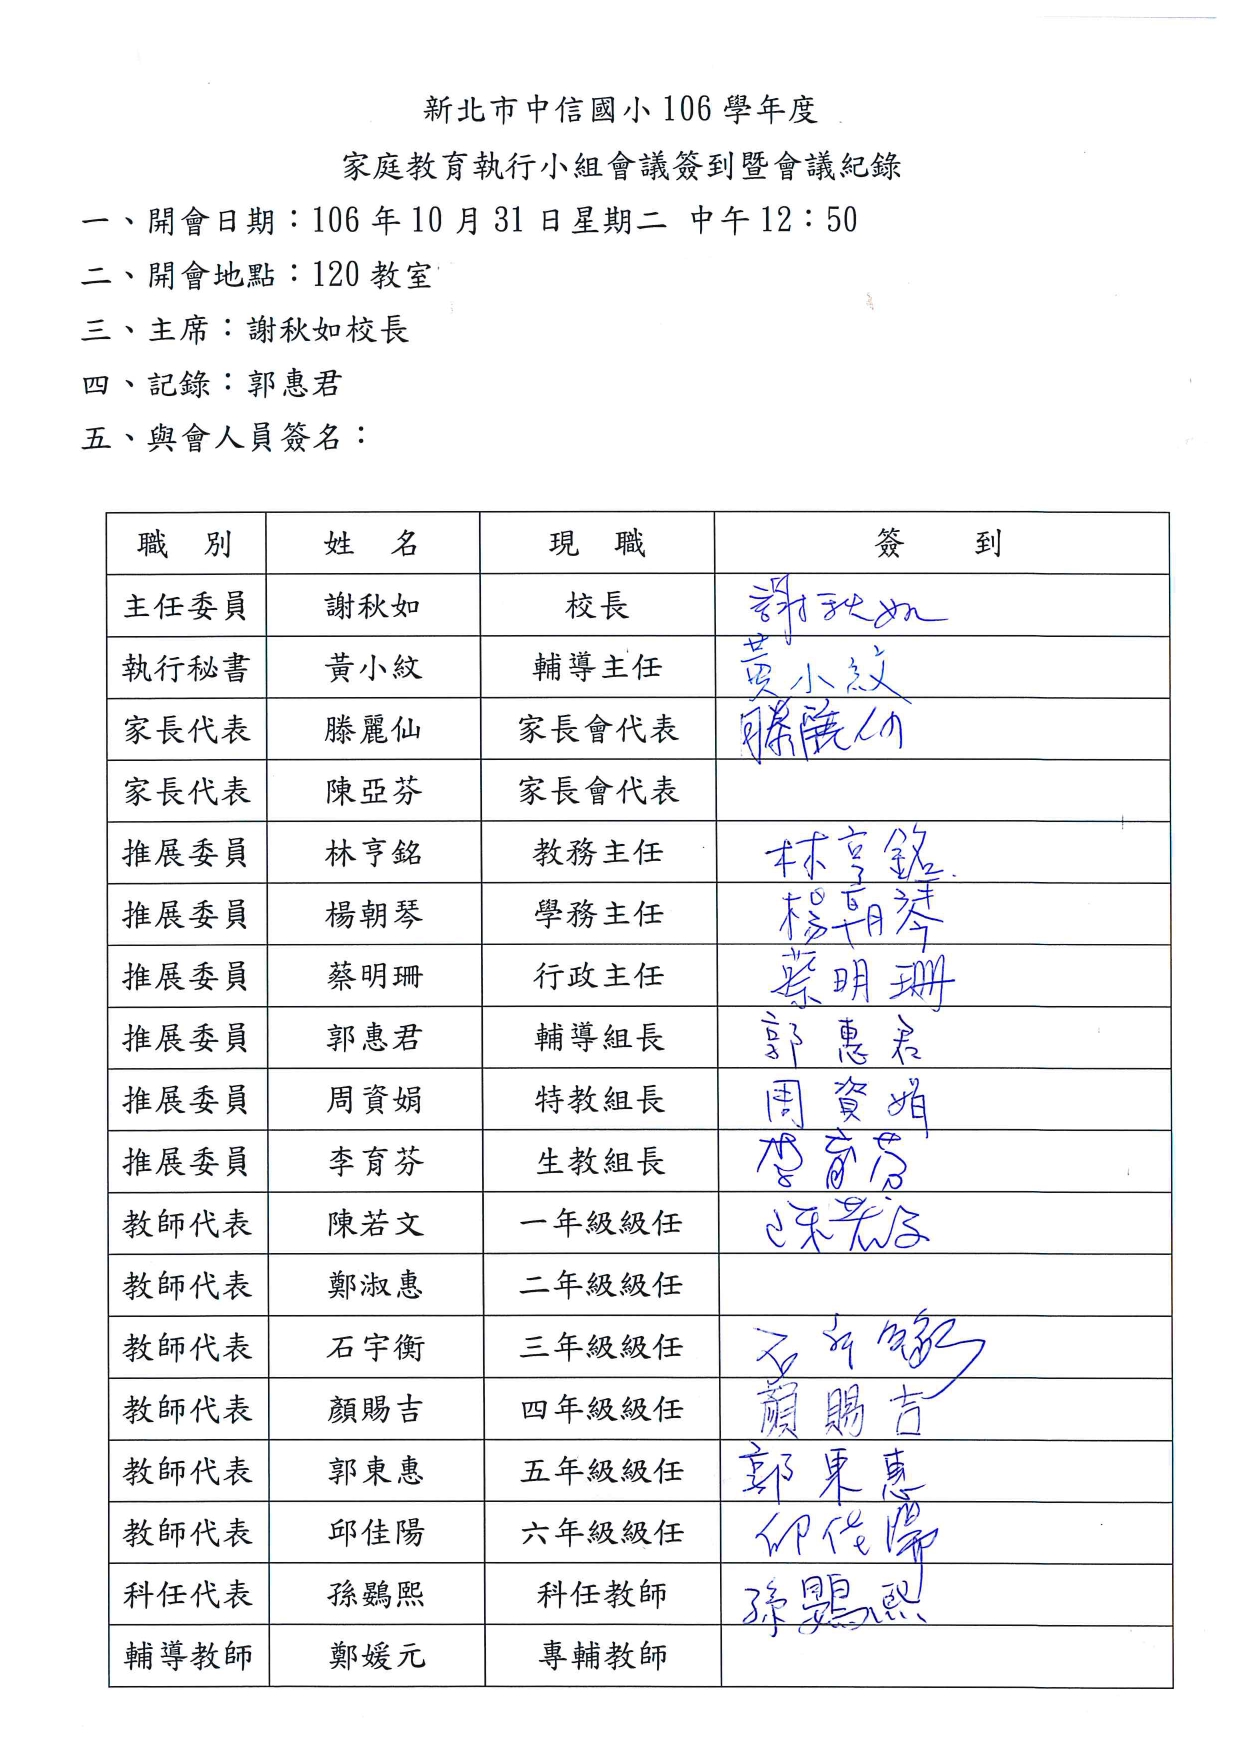 新北市中信國小106學年度
家庭教育執行小組會議簽到暨會議紀錄
一、開會日期：106年10月31日星期二 中午12：50
二、開會地點：120教室
三、主席：謝秋如校長
四、記錄：郭惠君
五、與會人員簽名：
職 別 姓 名 現 職 簽 到
主任委員 謝秋如 校長 謝秋如
執行秘書 黃小紋 輔導主任 黃小紋
家長代表 滕麗仙 家長會代表 滕麗仙
家長代表 陳亞芬 家長會代表
推展委員 林亨銘 教務主任 林亨銘
推展委員 楊朝琴 學務主任 楊朝琴
推展委員 蔡明珊 行政主任 蔡明珊
推展委員 郭惠君 輔導組長 郭惠君
推展委員 周資娟 特教組長 周資娟
推展委員 李育芬 生教組長 李育芬
教師代表 陳若文 一年級級任 陳若文
教師代表 鄭淑惠 二年級級任
教師代表 石宇衡 三年級級任 石宇衡
教師代表 顏賜吉 四年級級任 顏賜吉
教師代表 郭東惠 五年級級任 郭東惠
教師代表 邱佳陽 六年級級任 邱佳陽
科任代表 孫鷃熙 科任教師 孫鷃熙
輔導教師 鄭媛元 專輔教師